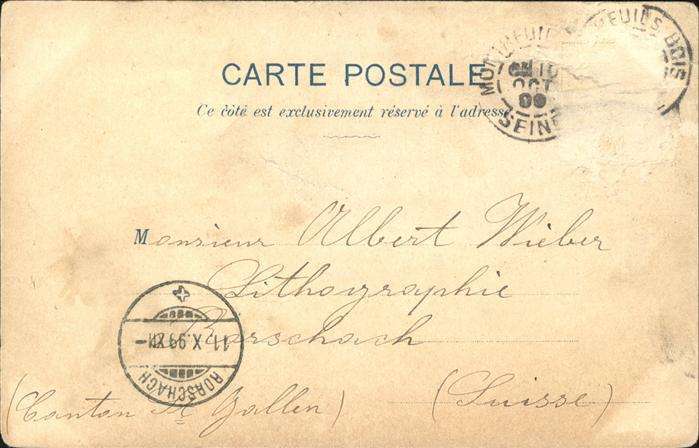 CARTE POSTALE
Ce côté est exclusivement réservé à l'adresse
MONTREUIL S BOIS
OCT
99
SEINE
Monsieur Albert Wieber
Lithographie
Rorschach
(Canton St Gallen) (Suisse)
11.X.99.XII-
RORSCHACH